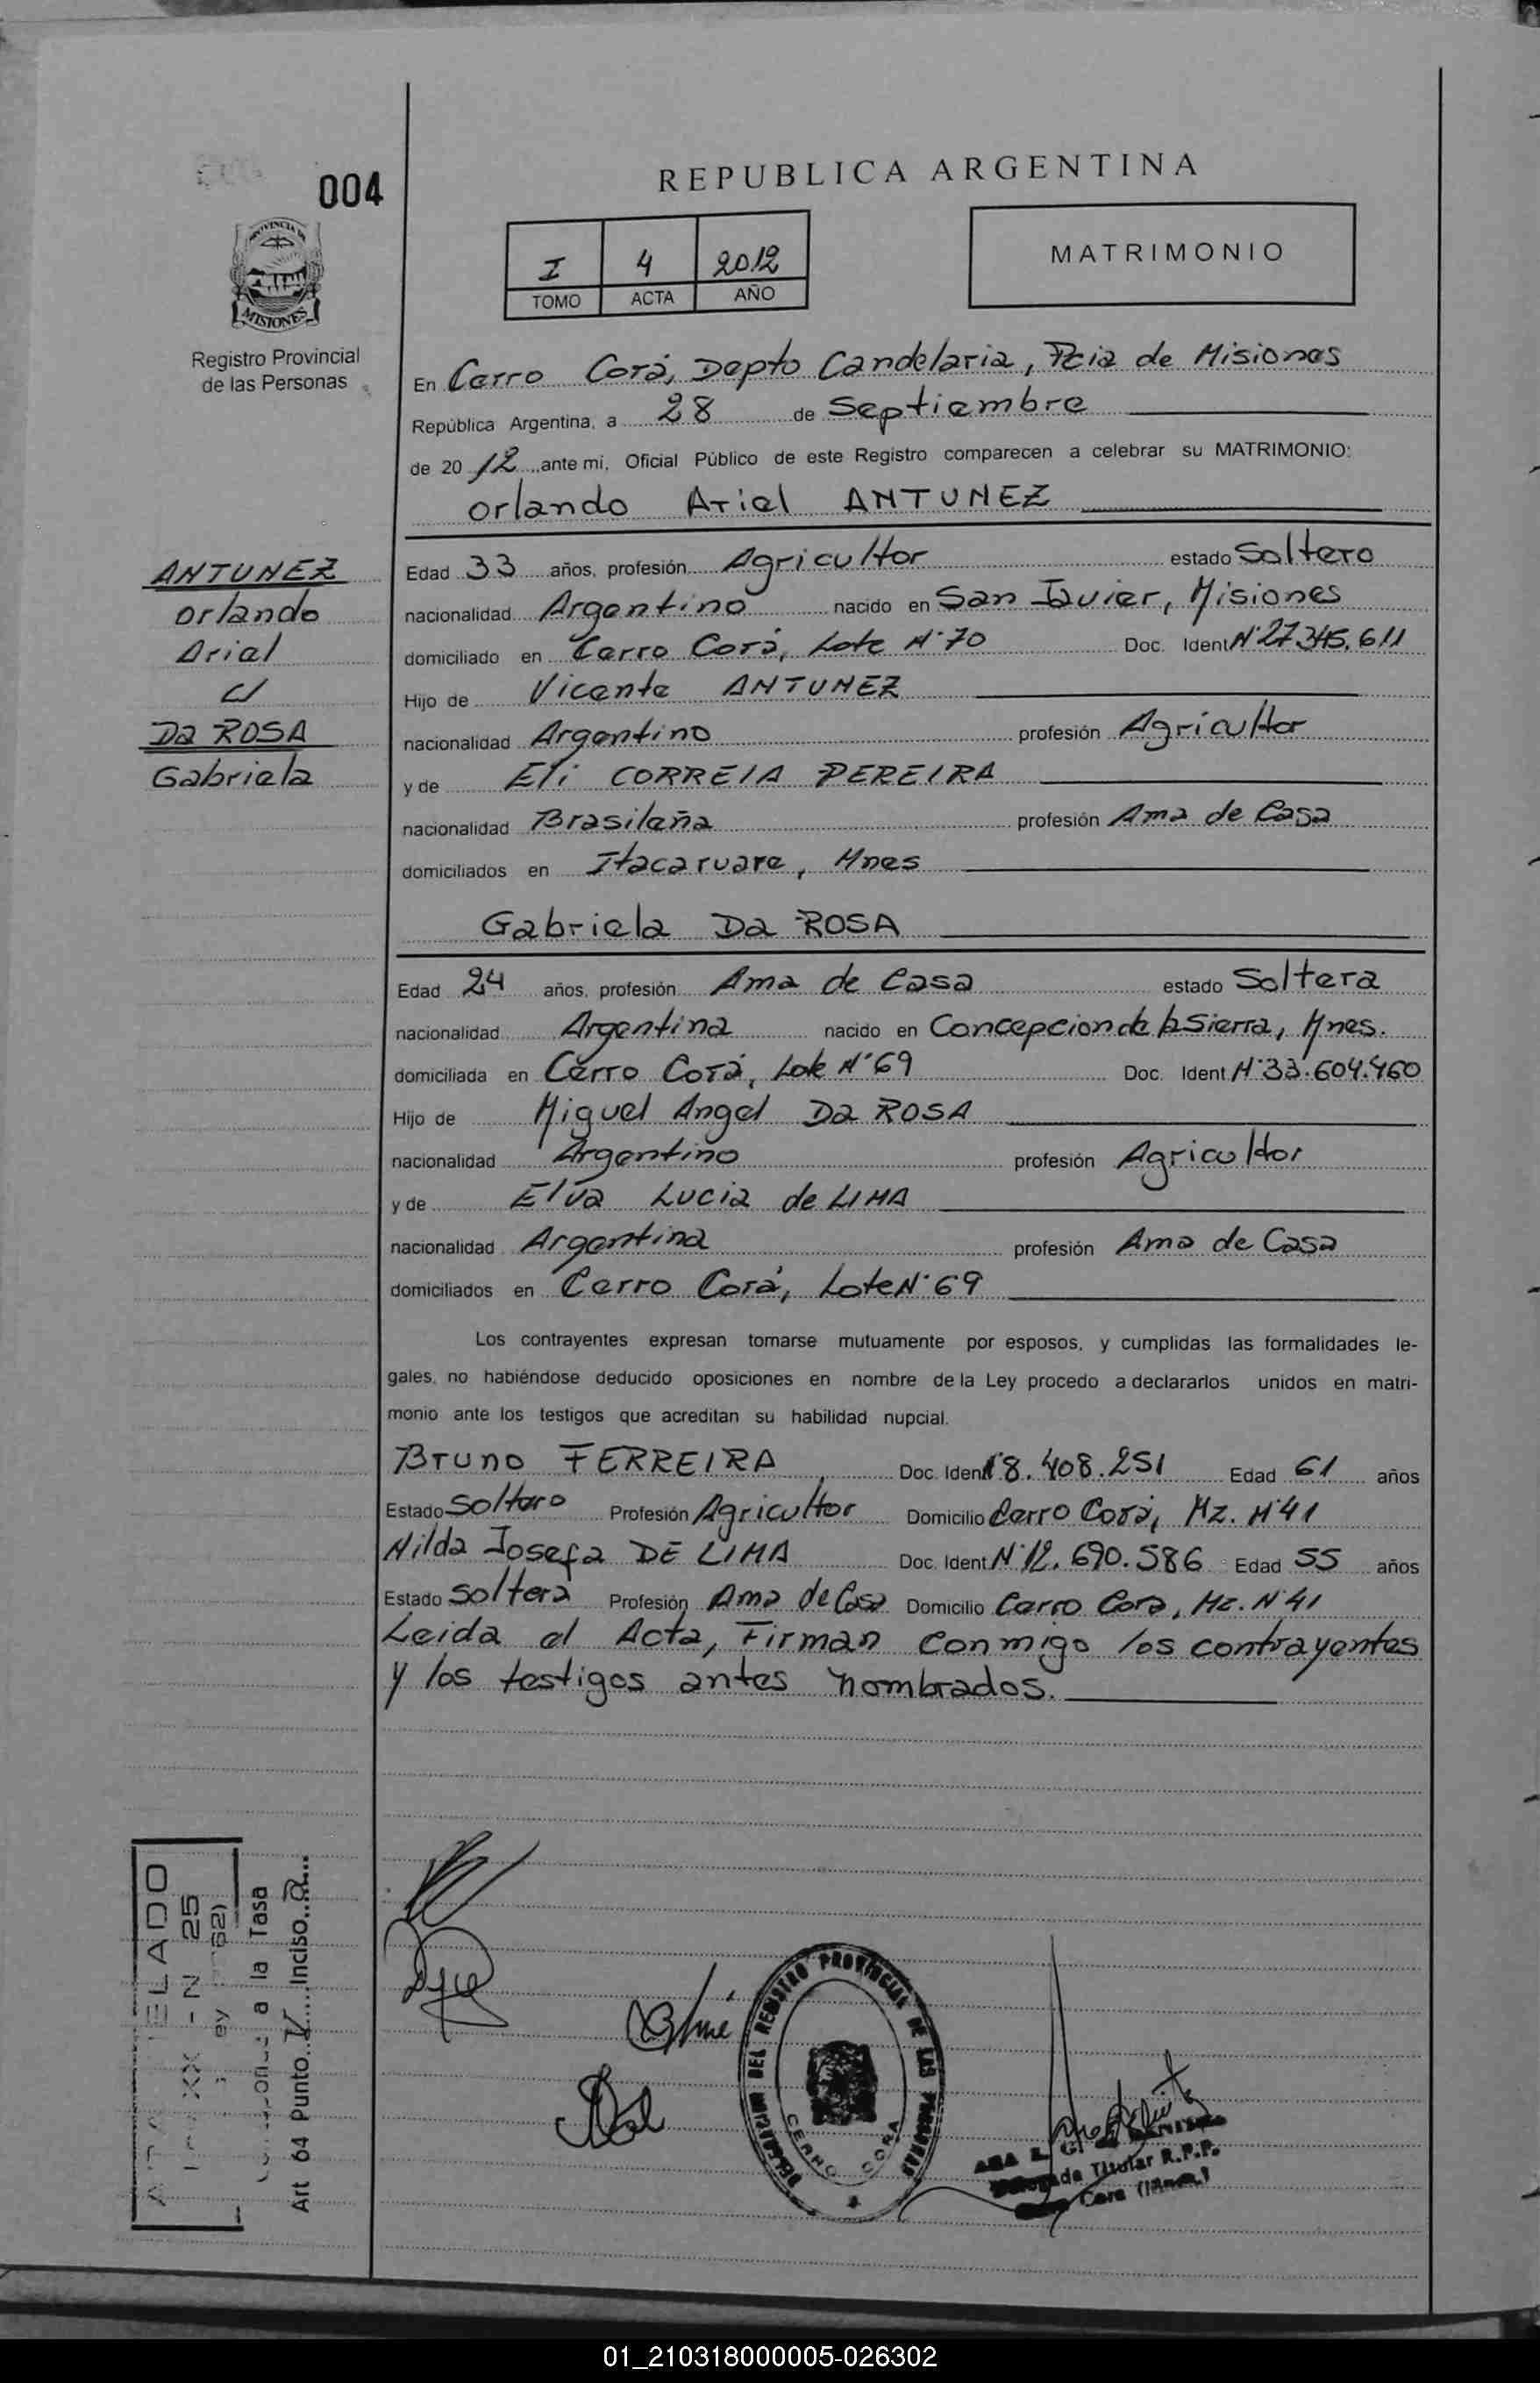 004
REPUBLICA ARGENTINA
PROVINCIA DE
MISIONES
Registro Provincial
de las Personas
I 4 2012
TOMO ACTA AÑO
MATRIMONIO
En Cerro Corá, Depto Candelaria, Pcia de Misiones
República Argentina, a 28 de Septiembre
de 20 12 ante mi, Oficial Público de este Registro comparecen a celebrar su MATRIMONIO:
Orlando Ariel ANTUNEZ
ANTUNEZ
Orlando
Ariel
c/
Da ROSA
Gabriela
Edad 33 años, profesión Agricultor estado Soltero
nacionalidad Argentino nacido en San Javier, Misiones
domiciliado en Cerro Corá, Lote N°70 Doc. Ident N°27.345.611
Hijo de Vicente ANTUNEZ
nacionalidad Argentino profesión Agricultor
y de Eli CORREIA PEREIRA
nacionalidad Brasileña profesión Ama de Casa
domiciliados en Itacaruare, Mnes
Gabriela Da ROSA
Edad 24 años, profesión Ama de Casa estado Soltera
nacionalidad Argentina nacido en Concepcion de la Sierra, Mnes.
domiciliada en Cerro Corá, Lote N°69 Doc. Ident N°33.604.460
Hijo de Miguel Angel Da ROSA
nacionalidad Argentino profesión Agricultor
y de Elva Lucia de LIMA
nacionalidad Argentina profesión Ama de Casa
domiciliados en Cerro Corá, Lote N°69
Los contrayentes expresan tomarse mutuamente por esposos, y cumplidas las formalidades le-
gales, no habiéndose deducido oposiciones en nombre de la Ley procedo a declararlos unidos en matri-
monio ante los testigos que acreditan su habilidad nupcial.
Bruno FERREIRA Doc. Ident 8.408.251 Edad 61 años
Estado Soltero Profesión Agricultor Domicilio Cerro Corá, Mz. N°41
Nilda Josefa DE LIMA Doc. Ident N°12.690.586 Edad 55 años
Estado Soltera Profesión Ama de Casa Domicilio Cerro Cora, Mz. N°41
Leida el Acta, Firman conmigo los contrayentes
y los testigos antes nombrados.
a la Tasa
Art 64 Punto V Inciso a
DELEGACION DEL REGISTRO PROVINCIAL DE LAS PERSONAS
CERRO CORA
Titular R.P.P.
Cora
01_210318000005-026302